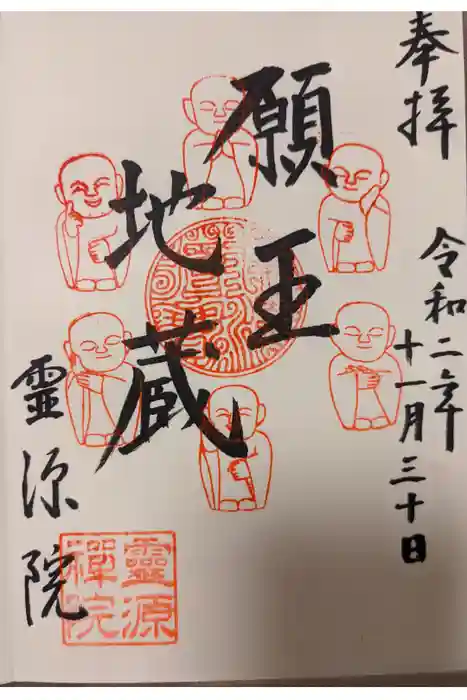 奉拝
令和二年
十一月三十日
願王
地蔵
靈源院
靈源
禪院